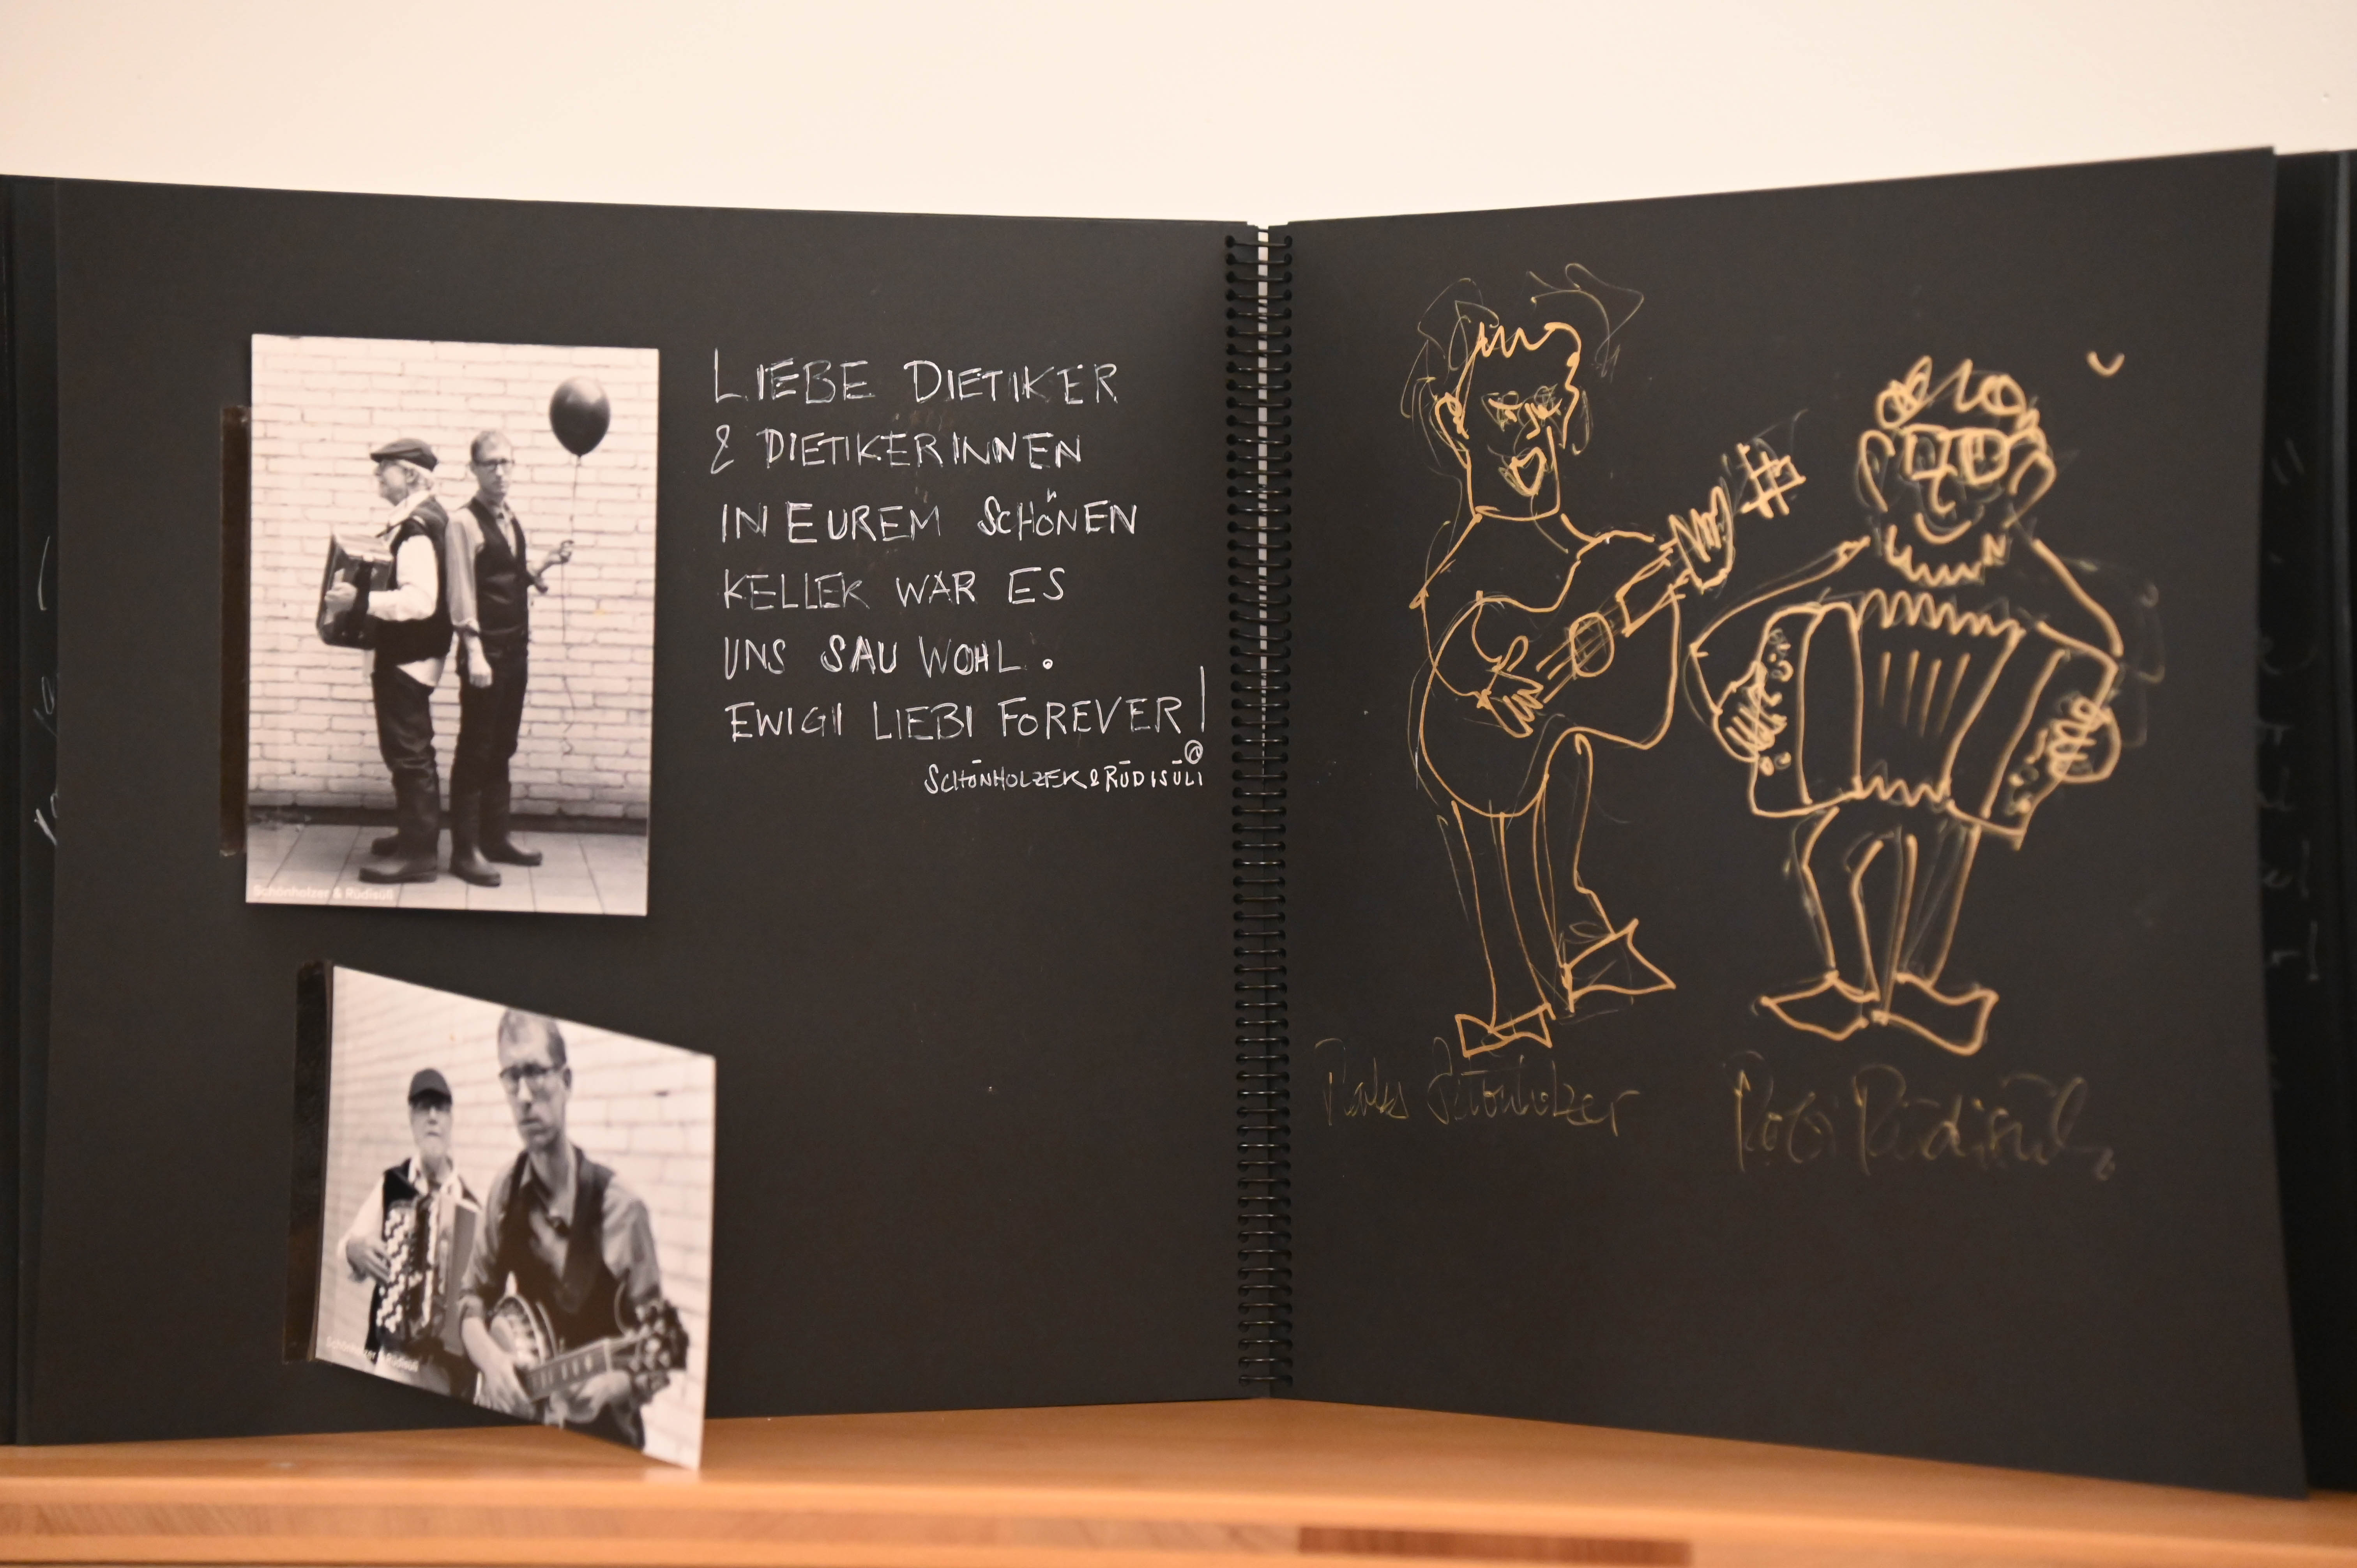 LIEBE DIETIKER
& DIETIKERINNEN
IN EUREM SCHÖNEN
KELLER WAR ES
UNS SAU WOHL.
EWIGI LIEBI FOREVER!
SCHÖNHOLZER & RÜDISÜLI
Schönholzer & Rüdisüli
Schönholzer & Rüdisüli
Schönholzer
Rüdisüli